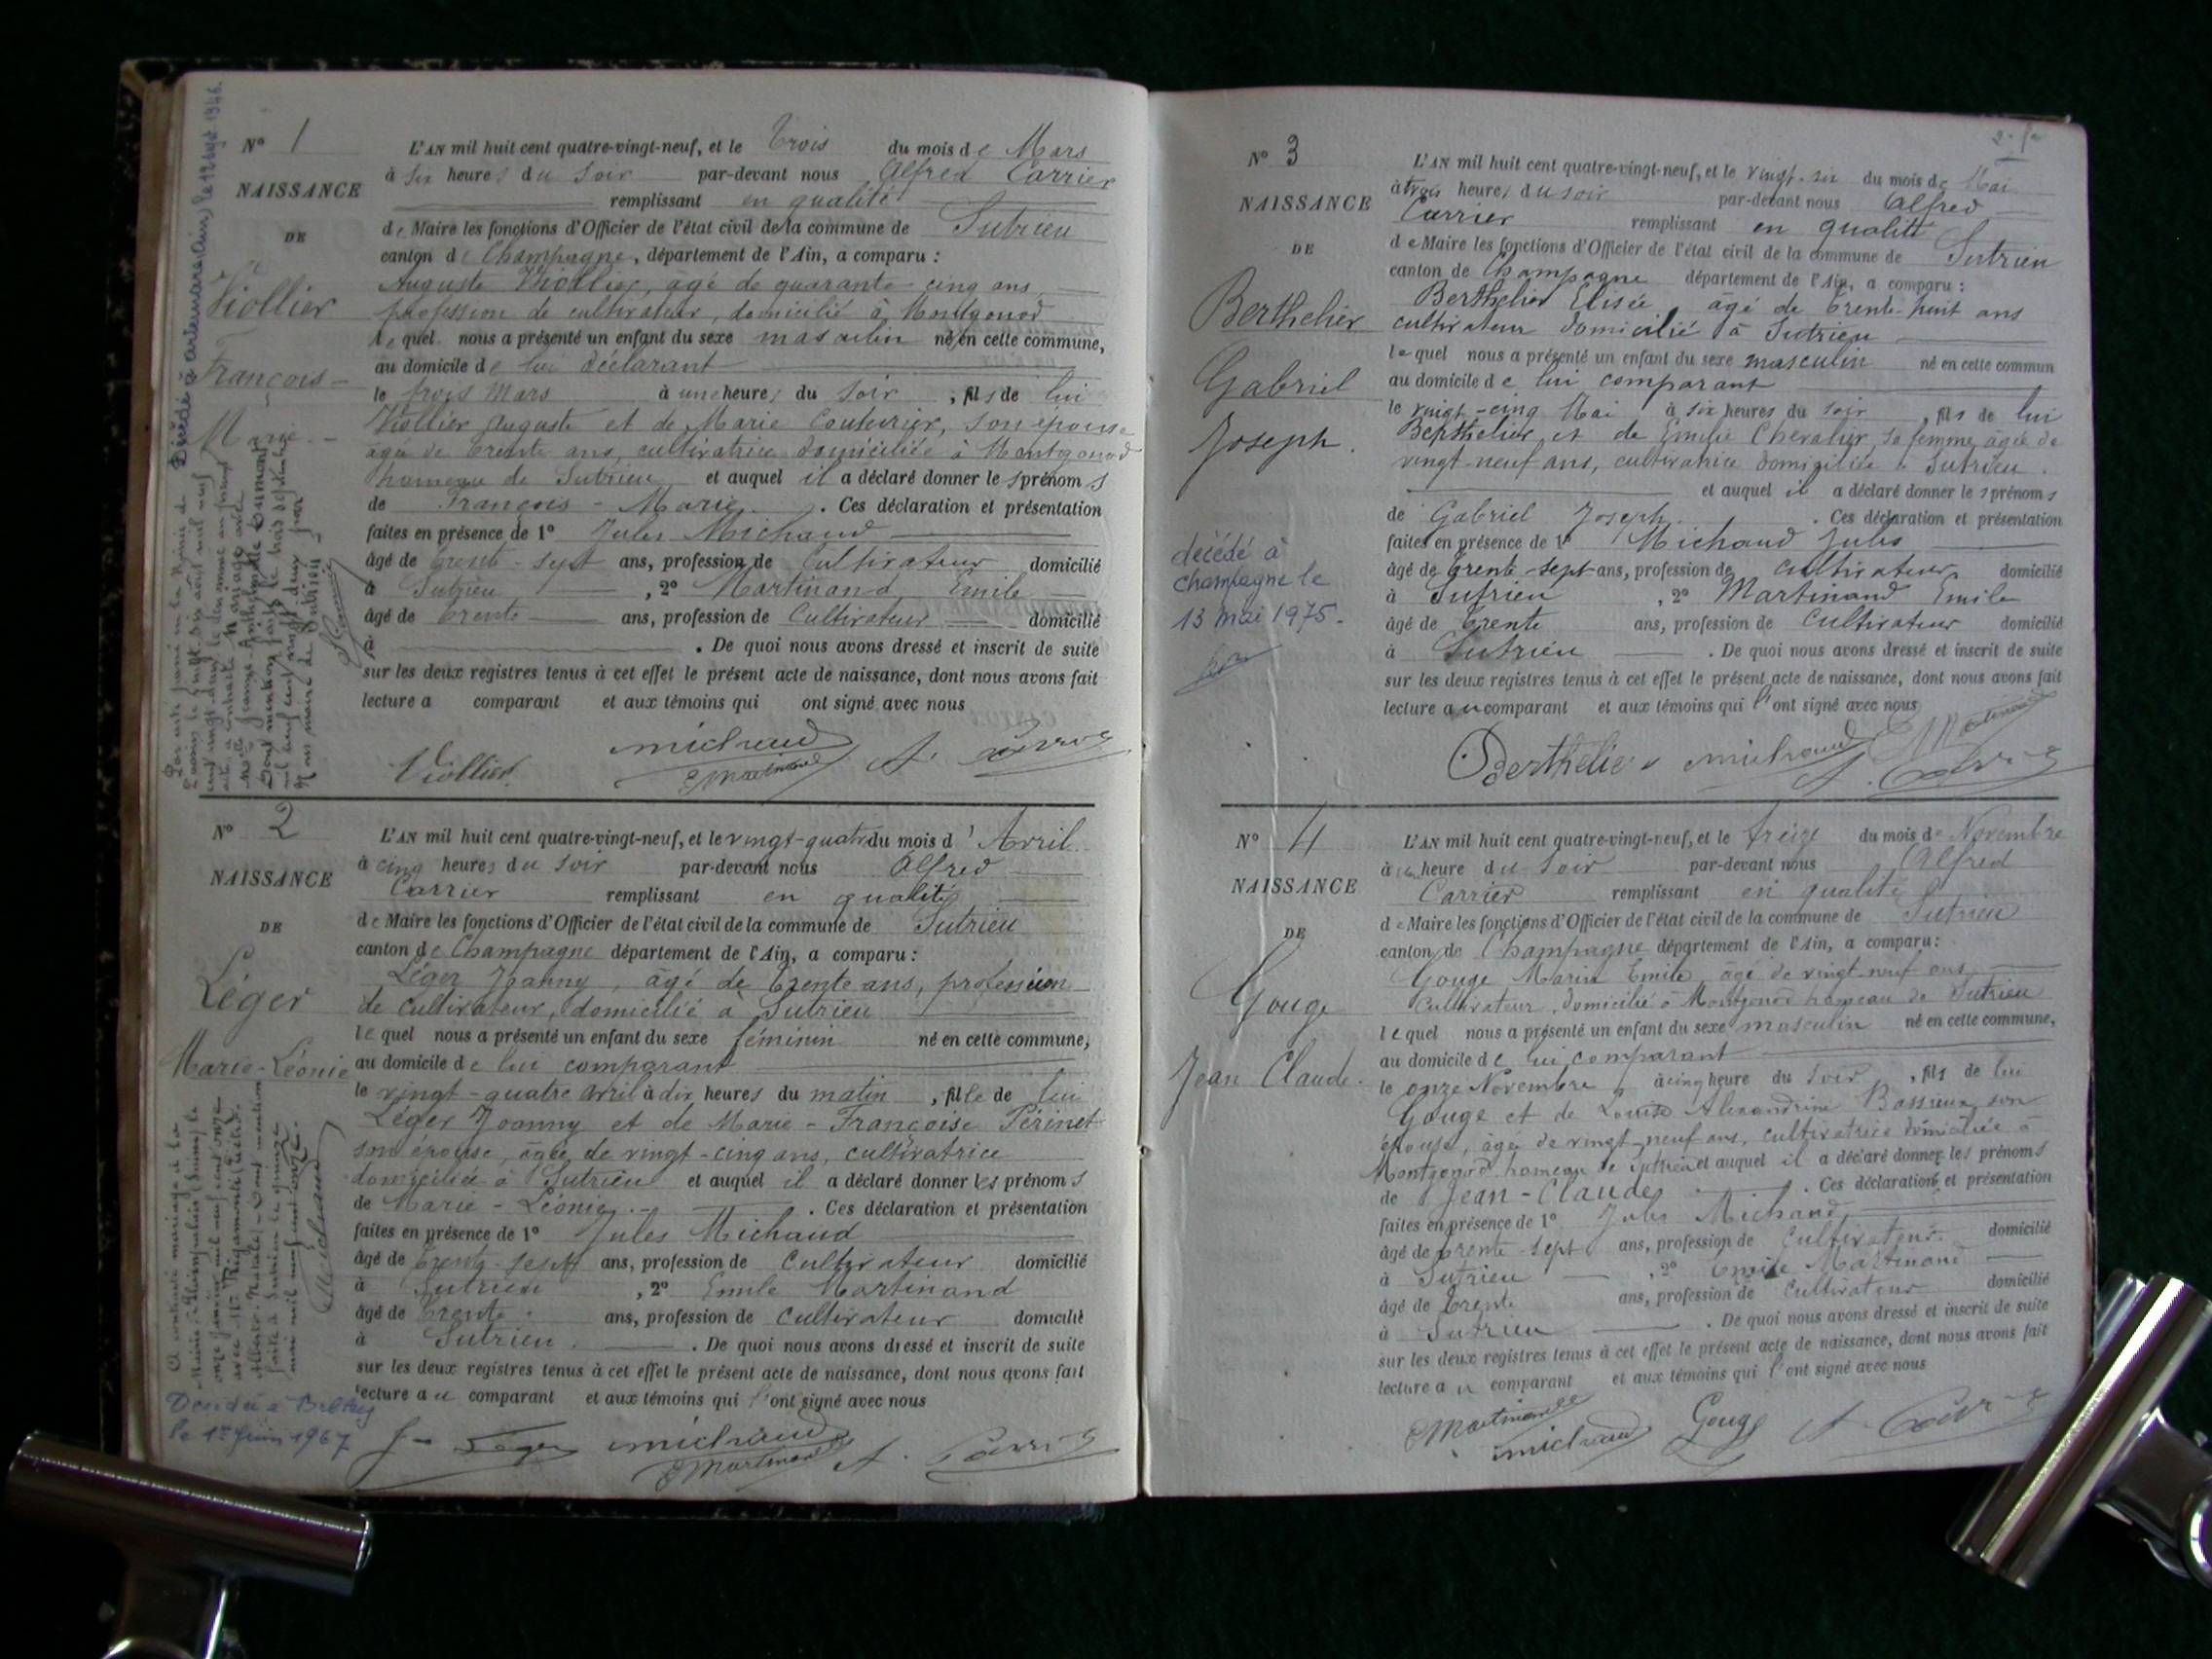 N° 1
NAISSANCE
DE
Viollier
François -
Marie. -
L'AN mil huit cent quatre-vingt-neuf, et le trois du mois de Mars
à six heures du soir par-devant nous Alfred Carrier
remplissant en qualité
de Maire les fonctions d'Officier de l'état civil de la commune de Sutrieu
canton de Champagne, département de l'Ain, a comparu :
Auguste Viollier, âgé de quarante cinq ans,
profession de cultivateur, domicilié à Montgonod
lequel nous a présenté un enfant du sexe masculin né en cette commune,
au domicile de lui déclarant
le trois Mars à une heure du soir ; fils de lui
Viollier Auguste et de Marie Couturier, son épouse
âgée de trente ans, cultivatrice domiciliée à Montgonod
hameau de Sutrieu et auquel il a déclaré donner les prénoms
de François - Marie. . Ces déclaration et présentation
faites en présence de 1° Jules Michaud
âgé de trente-sept ans, profession de Cultivateur domicilié
à Sutrieu , 2° Martinand Emile
âgé de trente ans, profession de Cultivateur domicilié
à . De quoi nous avons dressé et inscrit de suite
sur les deux registres tenus à cet effet le présent acte de naissance, dont nous avons fait
lecture a comparant et aux témoins qui ont signé avec nous
Viollier michaud A. Carrier
E Martinand
Décédé à le 12 sept. 1946.
N° 2
NAISSANCE
DE
Léger
Marie-Léonie
L'AN mil huit cent quatre-vingt-neuf, et le vingt-quatre du mois d'Avril
à cinq heures du soir par-devant nous Alfred
Carrier remplissant en qualité
de Maire les fonctions d'Officier de l'état civil de la commune de Sutrieu
canton de Champagne département de l'Ain, a comparu :
Léger Joanny, âgé de trente ans, profession
de cultivateur, domicilié à Sutrieu
lequel nous a présenté un enfant du sexe féminin né en cette commune,
au domicile de lui comparant
le vingt-quatre avril à dix heures du matin , fille de lui
Léger Joanny et de Marie - Françoise Périnet
son épouse, âgée de vingt-cinq ans, cultivatrice
domiciliée à Sutrieu et auquel il a déclaré donner les prénoms
de Marie - Léonie. - . Ces déclaration et présentation
faites en présence de 1° Jules Michaud
âgé de trente-sept ans, profession de cultivateur domicilié
à Sutrieu , 2° Emile Martinand
âgé de trente ans, profession de cultivateur domicilié
à Sutrieu . De quoi nous avons dressé et inscrit de suite
sur les deux registres tenus à cet effet le présent acte de naissance, dont nous avons fait
lecture au comparant et aux témoins qui l'ont signé avec nous
J Léger michaud A. Carrier
E Martinand
le 1er Juin 1967
N° 3
NAISSANCE
DE
Berthelier
Gabriel
Joseph.
décédé à
champagne le
13 mai 1975.
L'AN mil huit cent quatre-vingt-neuf, et le vingt-six du mois de Mai
à trois heures du soir par-devant nous Alfred
Carrier remplissant en qualité
de Maire les fonctions d'Officier de l'état civil de la commune de Sutrieu
canton de Champagne département de l'Ain, a comparu :
Berthelier Elisée âgé de trente-huit ans
cultivateur domicilié à Sutrieu
lequel nous a présenté un enfant du sexe masculin né en cette commun
au domicile de lui comparant
le vingt-cinq Mai à six heures du soir , fils de lui
Berthelier et de Emilie Chevalier sa femme âgée de
vingt-neuf ans, cultivatrice domiciliée à Sutrieu.
et auquel il a déclaré donner les prénoms
de Gabriel Joseph. . Ces déclaration et présentation
faites en présence de 1° Michaud Jules
âgé de trente-sept ans, profession de cultivateur domicilié
à Sutrieu , 2° Martinand Emile
âgé de trente ans, profession de cultivateur domicilié
à Sutrieu . De quoi nous avons dressé et inscrit de suite
sur les deux registres tenus à cet effet le présent acte de naissance, dont nous avons fait
lecture au comparant et aux témoins qui l'ont signé avec nous
Berthelier michaud E Martinand
A. Carrier
N° 4
NAISSANCE
DE
Gouge
Jean Claude.
L'AN mil huit cent quatre-vingt-neuf, et le treize du mois de Novembre
à une heure du soir par-devant nous Alfred
Carrier remplissant en qualité
de Maire les fonctions d'Officier de l'état civil de la commune de Sutrieu
canton de Champagne département de l'Ain, a comparu :
Gouge Marin Emile, âgé de vingt-neuf ans
cultivateur, domicilié à Montgonod hameau de Sutrieu
lequel nous a présenté un enfant du sexe masculin né en cette commune,
au domicile de lui comparant
le onze Novembre à cinq heure du soir , fils de lui
Gouge et de Louise Alexandrine Bassieux son
épouse, âgée de vingt-neuf ans, cultivatrice domiciliée à
Montgonod hameau de Sutrieu et auquel il a déclaré donner les prénoms
de Jean-Claude . Ces déclaration et présentation
faites en présence de 1° Jules Michaud
âgé de trente-sept ans, profession de Cultivateur domicilié
à Sutrieu , 2° Emile Martinand
âgé de trente ans, profession de Cultivateur domicilié
à Sutrieu . De quoi nous avons dressé et inscrit de suite
sur les deux registres tenus à cet effet le présent acte de naissance, dont nous avons fait
lecture au comparant et aux témoins qui l'ont signé avec nous
E Martinand
michaud Gouge A. Carrier